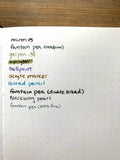 micron 05
fountain pen (medium)
gel pen .38
highlighter
ballpoint
acrylic marker
colored pencil
fountain pen (double broad)
fountain pen (extra fine)